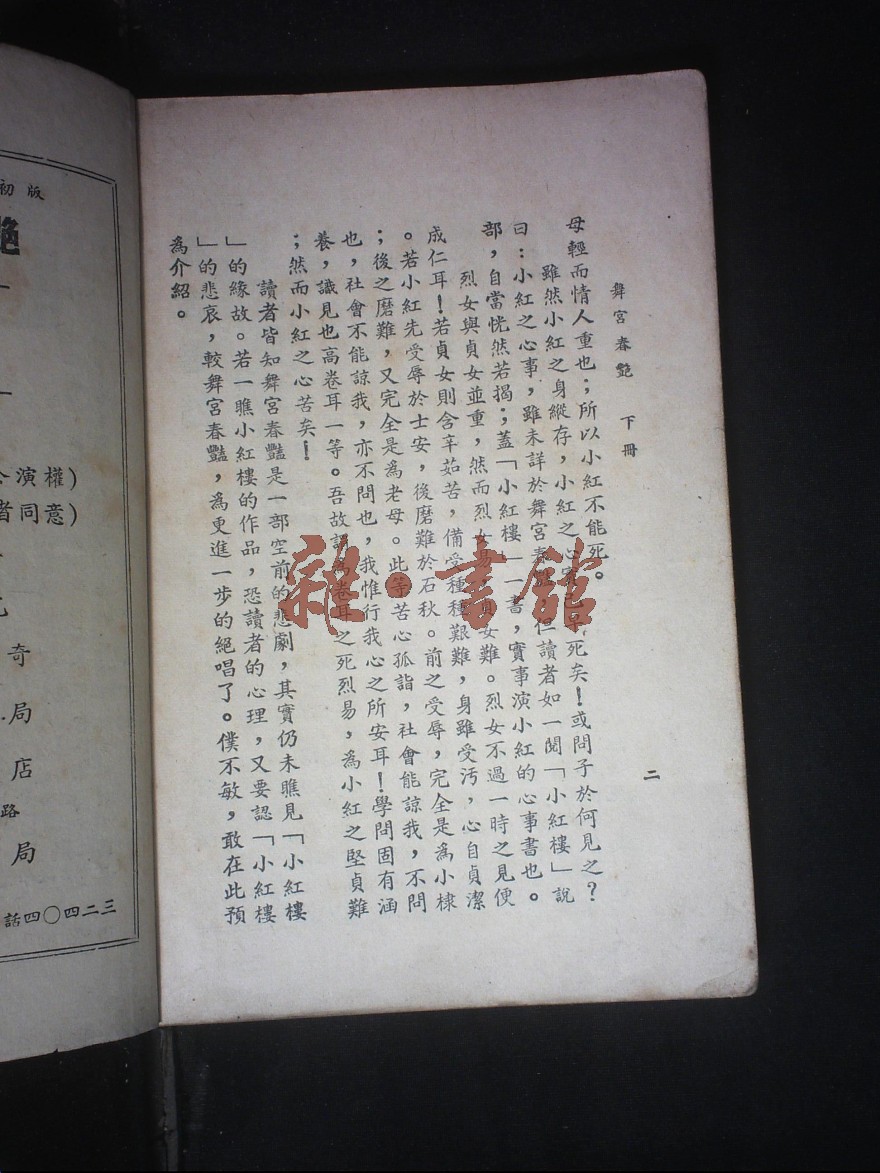 舞宮春艷　下冊
二
母輕而情人重也；所以小紅不能死。
雖然小紅之身縱存，小紅之心實已早死矣！或問子於何見之？
曰：小紅之心事，雖未詳於舞宮春豔，但讀者如一閱「小紅樓」說
部，自當恍然若揭；蓋「小紅樓」一書，實事演小紅的心事書也。
烈女與貞女並重，然而烈女易，貞女難。烈女不過一時之見便
成仁耳！若貞女則含辛茹苦，備受種種艱難，身雖受污，心自貞潔
。若小紅先受辱於士安，後磨難於石秋。前之受辱，完全是爲小棣
；後之磨難，又完全是爲老母。此等苦心孤詣，社會能諒我，不問
也，社會不能諒我，亦不問也，我惟行我心之所安耳！學問固有涵
養，識見也高卷耳一等。吾故謂爲卷耳之死烈易，爲小紅之堅貞難
；然而小紅之心苦矣！
讀者皆知舞宮春豔是一部空前的悲劇，其實仍未瞧見「小紅樓
」的緣故。若一瞧小紅樓的作品，恐讀者的心理，又要認「小紅樓
」的悲哀，較舞宮春豔，爲更進一步的絕唱了。僕不敏，敢在此預
爲介紹。
雜·書館
初版
演權）
者同意）
奇
局
店
路
局
話四〇四二三